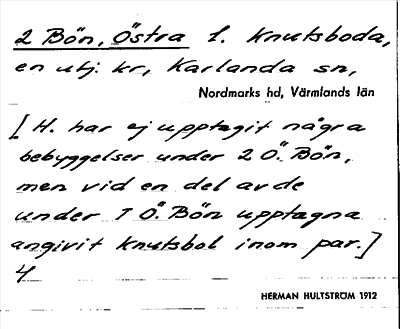 2 Bön, Östra l. Knutsboda,
en utj. kr, Karlanda sn,
Nordmarks hd, Värmlands län
[H. har ej upptagit några
bebyggelser under 2 Ö. Bön,
men vid en del av de
under 1 Ö. Bön upptagna
angivit Knutsbol inom par.]
4
HERMAN HULTSTRÖM 1912